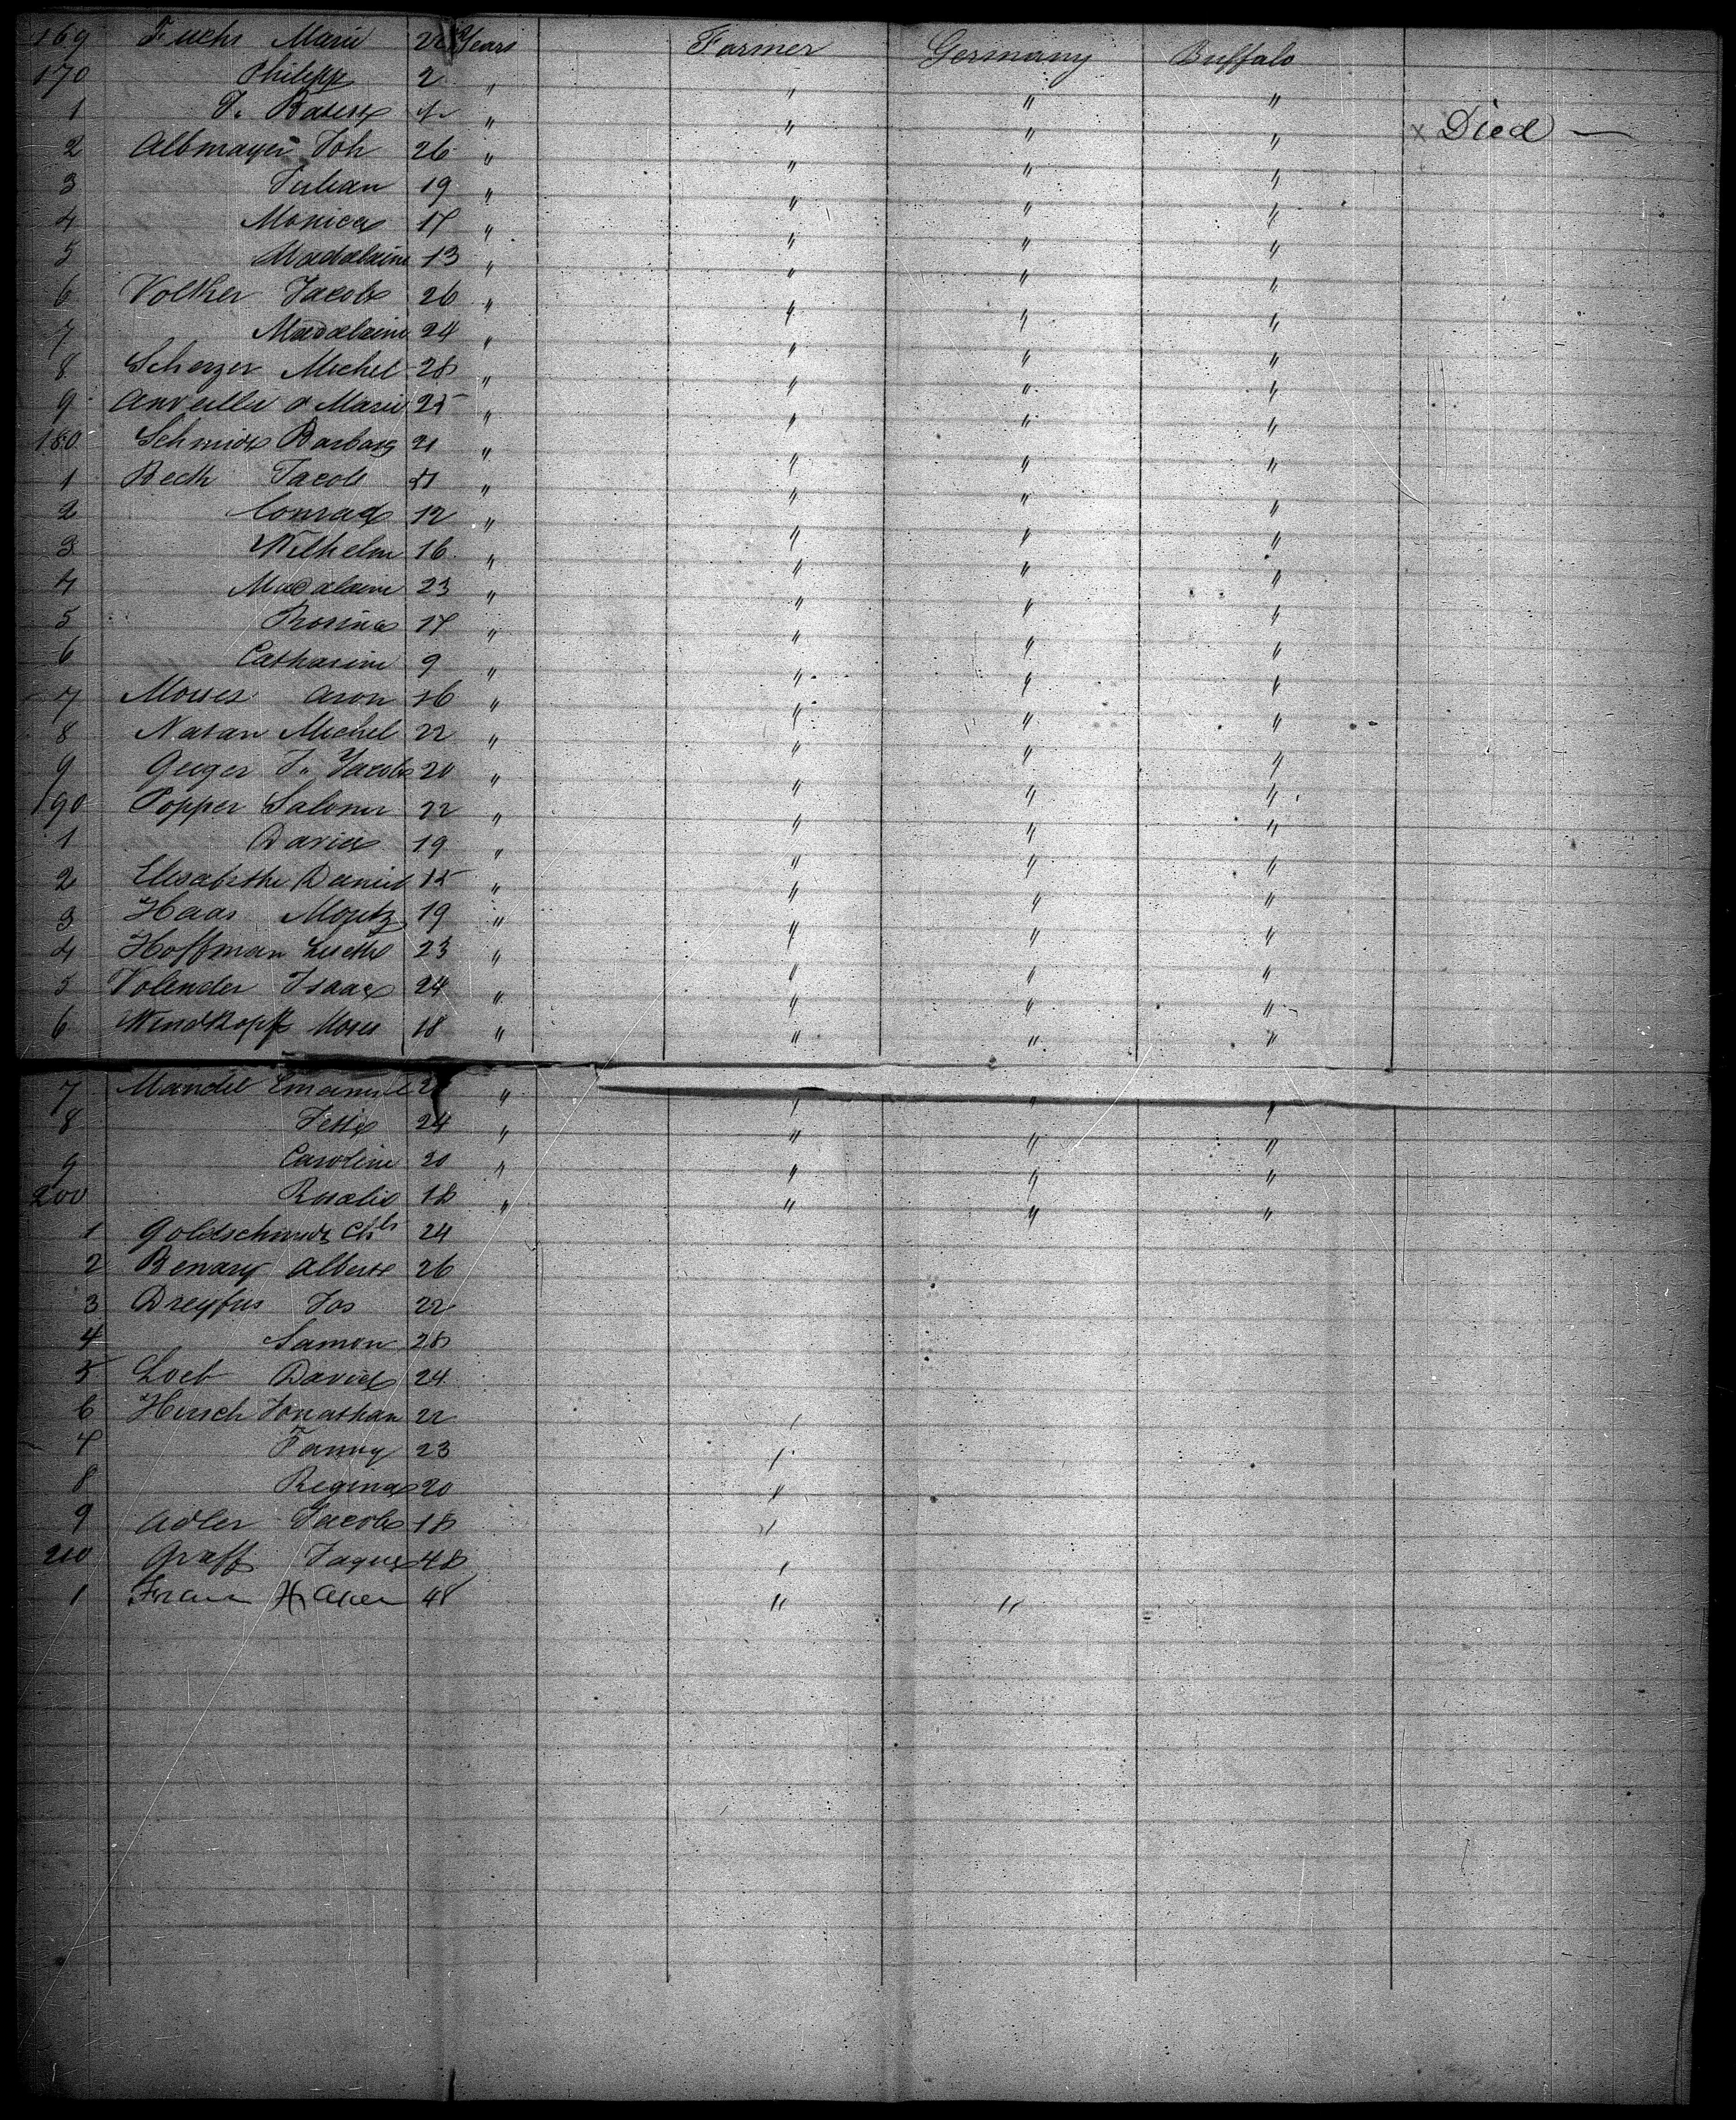 169 Fuchs Marie 22 Years Farmer Germany Buffalo
170 Philipp 2 " " " "
1 J. Batist " " " " x Died —
2 Albmayer Joh 26 " " " "
3 Julian 19 " " " "
4 Monica 17 " " " "
5 Madalaine 13 " " " "
6 Volker Jacob 26 " " " "
7 Madalaine 24 " " " "
8 Scherzer Michel 28 " " " "
9 Marie 25 " " " "
180 Schmidt Barbara 21 " " " "
1 Beck Jacob " " " "
2 Conrad 12 " " " "
3 Wilhelm 16 " " " "
4 Madalaine 23 " " " "
5 Rosina 17 " " " "
6 Catharine 9 " " " "
7 Moses Aron 16 " " " "
8 Natan Michel 22 " " " "
9 Geiger J. Jacob 20 " " " "
190 Popper Salomon 22 " " " "
1 David 19 " " " "
2 Elisabethe Daniel 15 " " " "
3 Haas Moritz 19 " " " "
4 Hoffman 23 " " " "
5 Volender Isaac 24 " " " "
6 Windkopf Moses 18 " " " "
7 Mandel Emanuel " " " "
8 Jette 24 " " " "
9 Caroline 20 " " " "
200 Rosalie 18 " " " "
1 Goldschmidt Chls 24
2 Benary Albert 26
3 Dreyfus Jos 22
4 Samon 28
5 Loeb David 24
6 Hirsch Jonathan 22
7 Fanny 23
8 Regina 20 "
9 Adler Jacob 18
210 Graff Jaques 48
1 48 " "